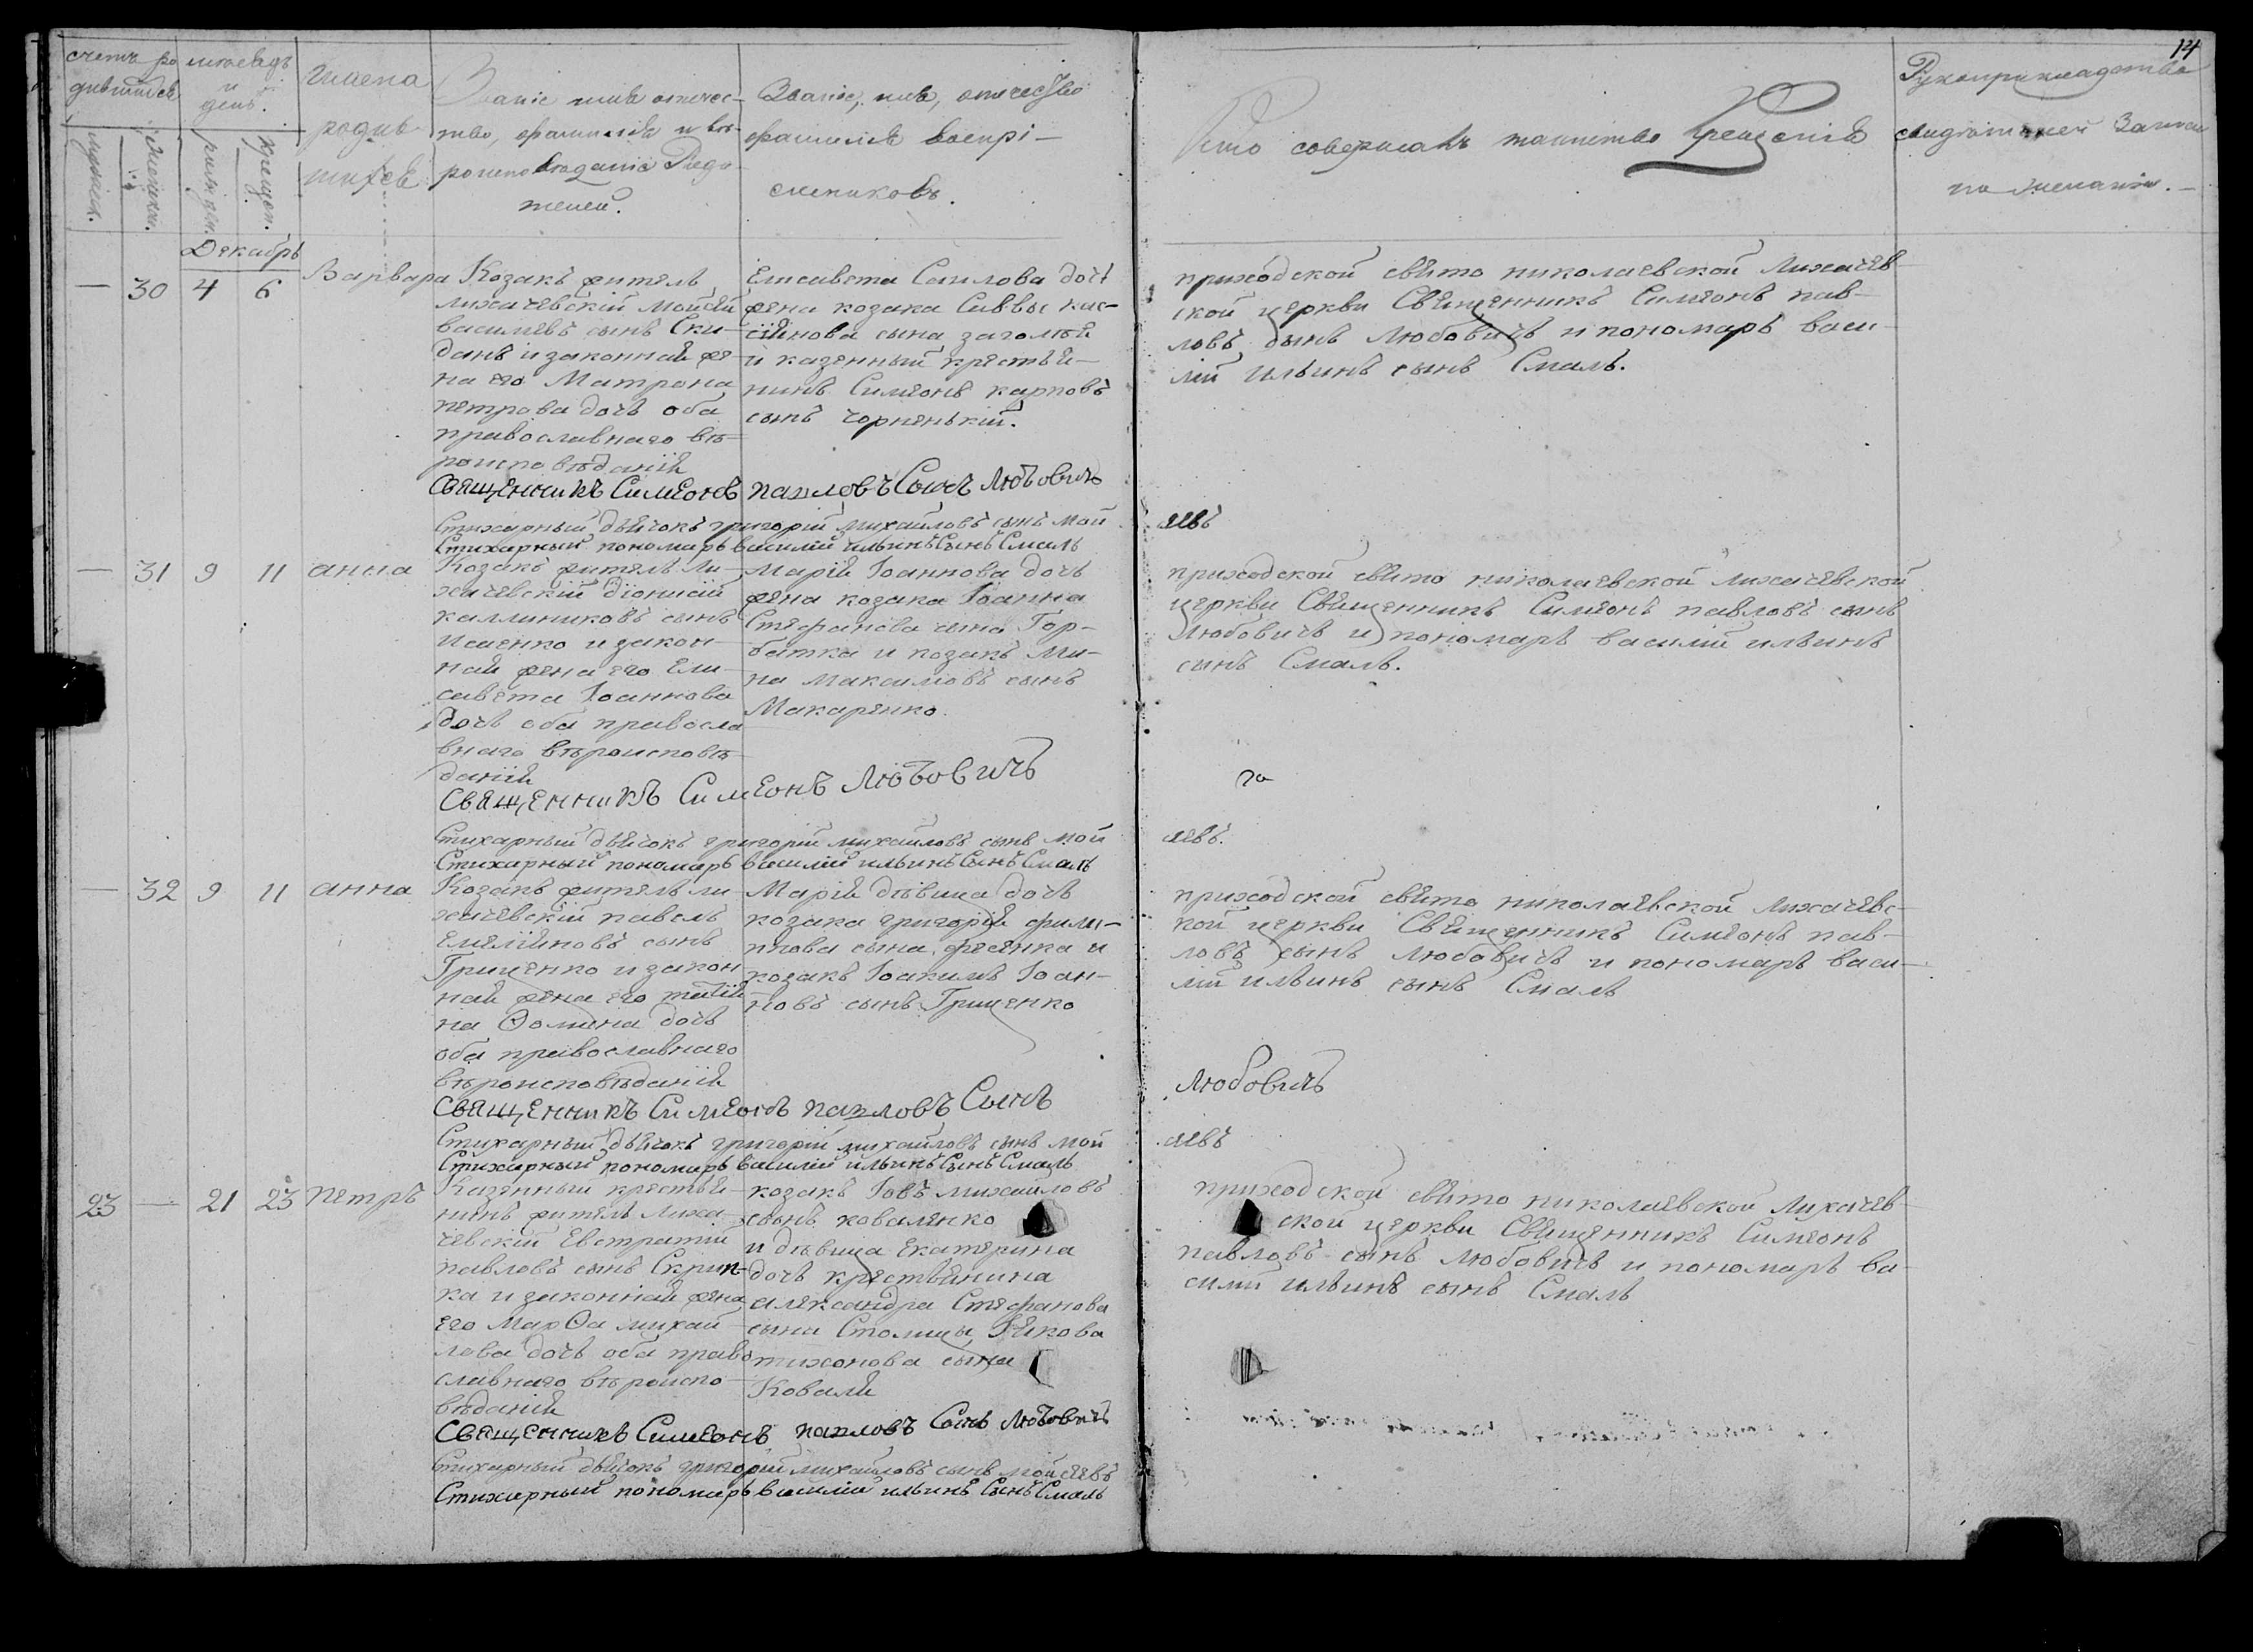 14
счетъ ро
дившихся
мужеск.
женска.
месяцъ
и
день.
рожден.
крещен.
Имена
родив
шихся
Званіе имя отечес-
тво, фамилія и вѣ-
роисповѣданіе Роди-
телей.
Званіе, имя, отечество
фамилія воспрі-
емниковъ.
Кто совершалъ таинство Крещенія
Рукоприкладство
свидѣтелей записи
по желанію.
Декабрь
— 30 4 6 Варвара
Козакъ житель
лихачевскій Мойсей
василіевъ сынъ Ски-
данъ и законная же-
на его Матрона
петрова дочь оба
православнаго вѣ-
роисповѣданія
Елисавета Саилова дочь
жена козака Саввы кас-
сіянова сына заголюй
и казенный крестья-
нинъ Симеонъ карповъ
сынъ чорненькій.
приходской свято николаевской лихачев-
ской церкви Священникъ Симеонъ пав-
ловъ сынъ любовичъ и пономарь васи-
лій ильинъ сынъ Смаль.
Священникъ Симеонъ павловъ Сынъ Любовичъ
Стихарный дьячокъ григорій михайловъ сынъ мой
сеевъ
Стихарный пономарь василій ильинъ Сынъ Смаль
— 31 9 11 анна
Козакъ житель ли-
хачевскій діонисій
каллиниковъ сынъ
Исаенко и закон-
ная жена его Ели-
савета Іоаннова
дочь оба правосла
внаго вѣроисповѣ-
данія
Марія Іоаннова дочь
жена козака Іоанна
Стефанова сына Гор-
батка и козакъ Ми-
на Максимовъ сынъ
Макаренко.
приходской свято николаевской лихачевской
церкви Священникъ Симеонъ павловъ сынъ
Любовичъ и пономарь василій ильинъ
сынъ Смаль.
Священникъ Симеонъ Любовичъ
Стихарный дьячокъ григорій михайловъ сынъ мой
сеевъ.
Стихарный пономарь василій ильинъ Сынъ Смаль
— 32 9 11 анна
Козакъ житель ли-
хачевскій павелъ
Емеліяновъ сынъ
Гриценко и закон
ная жена его татія
на Ѳомина дочь
оба православнаго
вѣроисповѣданія
Марія дѣвица дочь
козака григорія фили-
ппова сына фесенка и
козакъ Іоакимъ Іоан-
новъ сынъ Гриценко
приходской свято николаевской лихачевс-
кой церкви Священникъ Симеонъ пав-
ловъ сынъ любовичъ и пономарь васи-
лій ильинъ сынъ Смаль
Священникъ Симеонъ павловъ Сынъ
Любовичъ
Стихарный дьячокъ григорій михайловъ сынъ мой
сеевъ
Стихарный пономарь василій ильинъ Сынъ Смаль
23 — 21 23 петръ
Казенный крестья-
нинъ житель лиха-
чевскій Евстратій
павловъ сынъ Скрип-
ка и законная жена
его Марѳа михай-
лова дочь оба право
славнаго вѣроиспо-
вѣданія
козакъ Іовъ михайловъ
сынъ коваленко
и дѣвица екатерина
дочь крестьянина
александра Стефанова
сына Столицы Іякова
тихонова сына
Коваля
приходской свято николаевской Лихачев-
ской церкви Священникъ Симеонъ
павловъ сынъ любовичъ и пономарь ва-
силій ильинъ сынъ Смаль
Священникъ Симеонъ павловъ Сынъ Любовичъ
Стихарный дьячокъ григорій михайловъ сынъ мойсеевъ
Стихарный пономарь василій ильинъ Сынъ Смаль